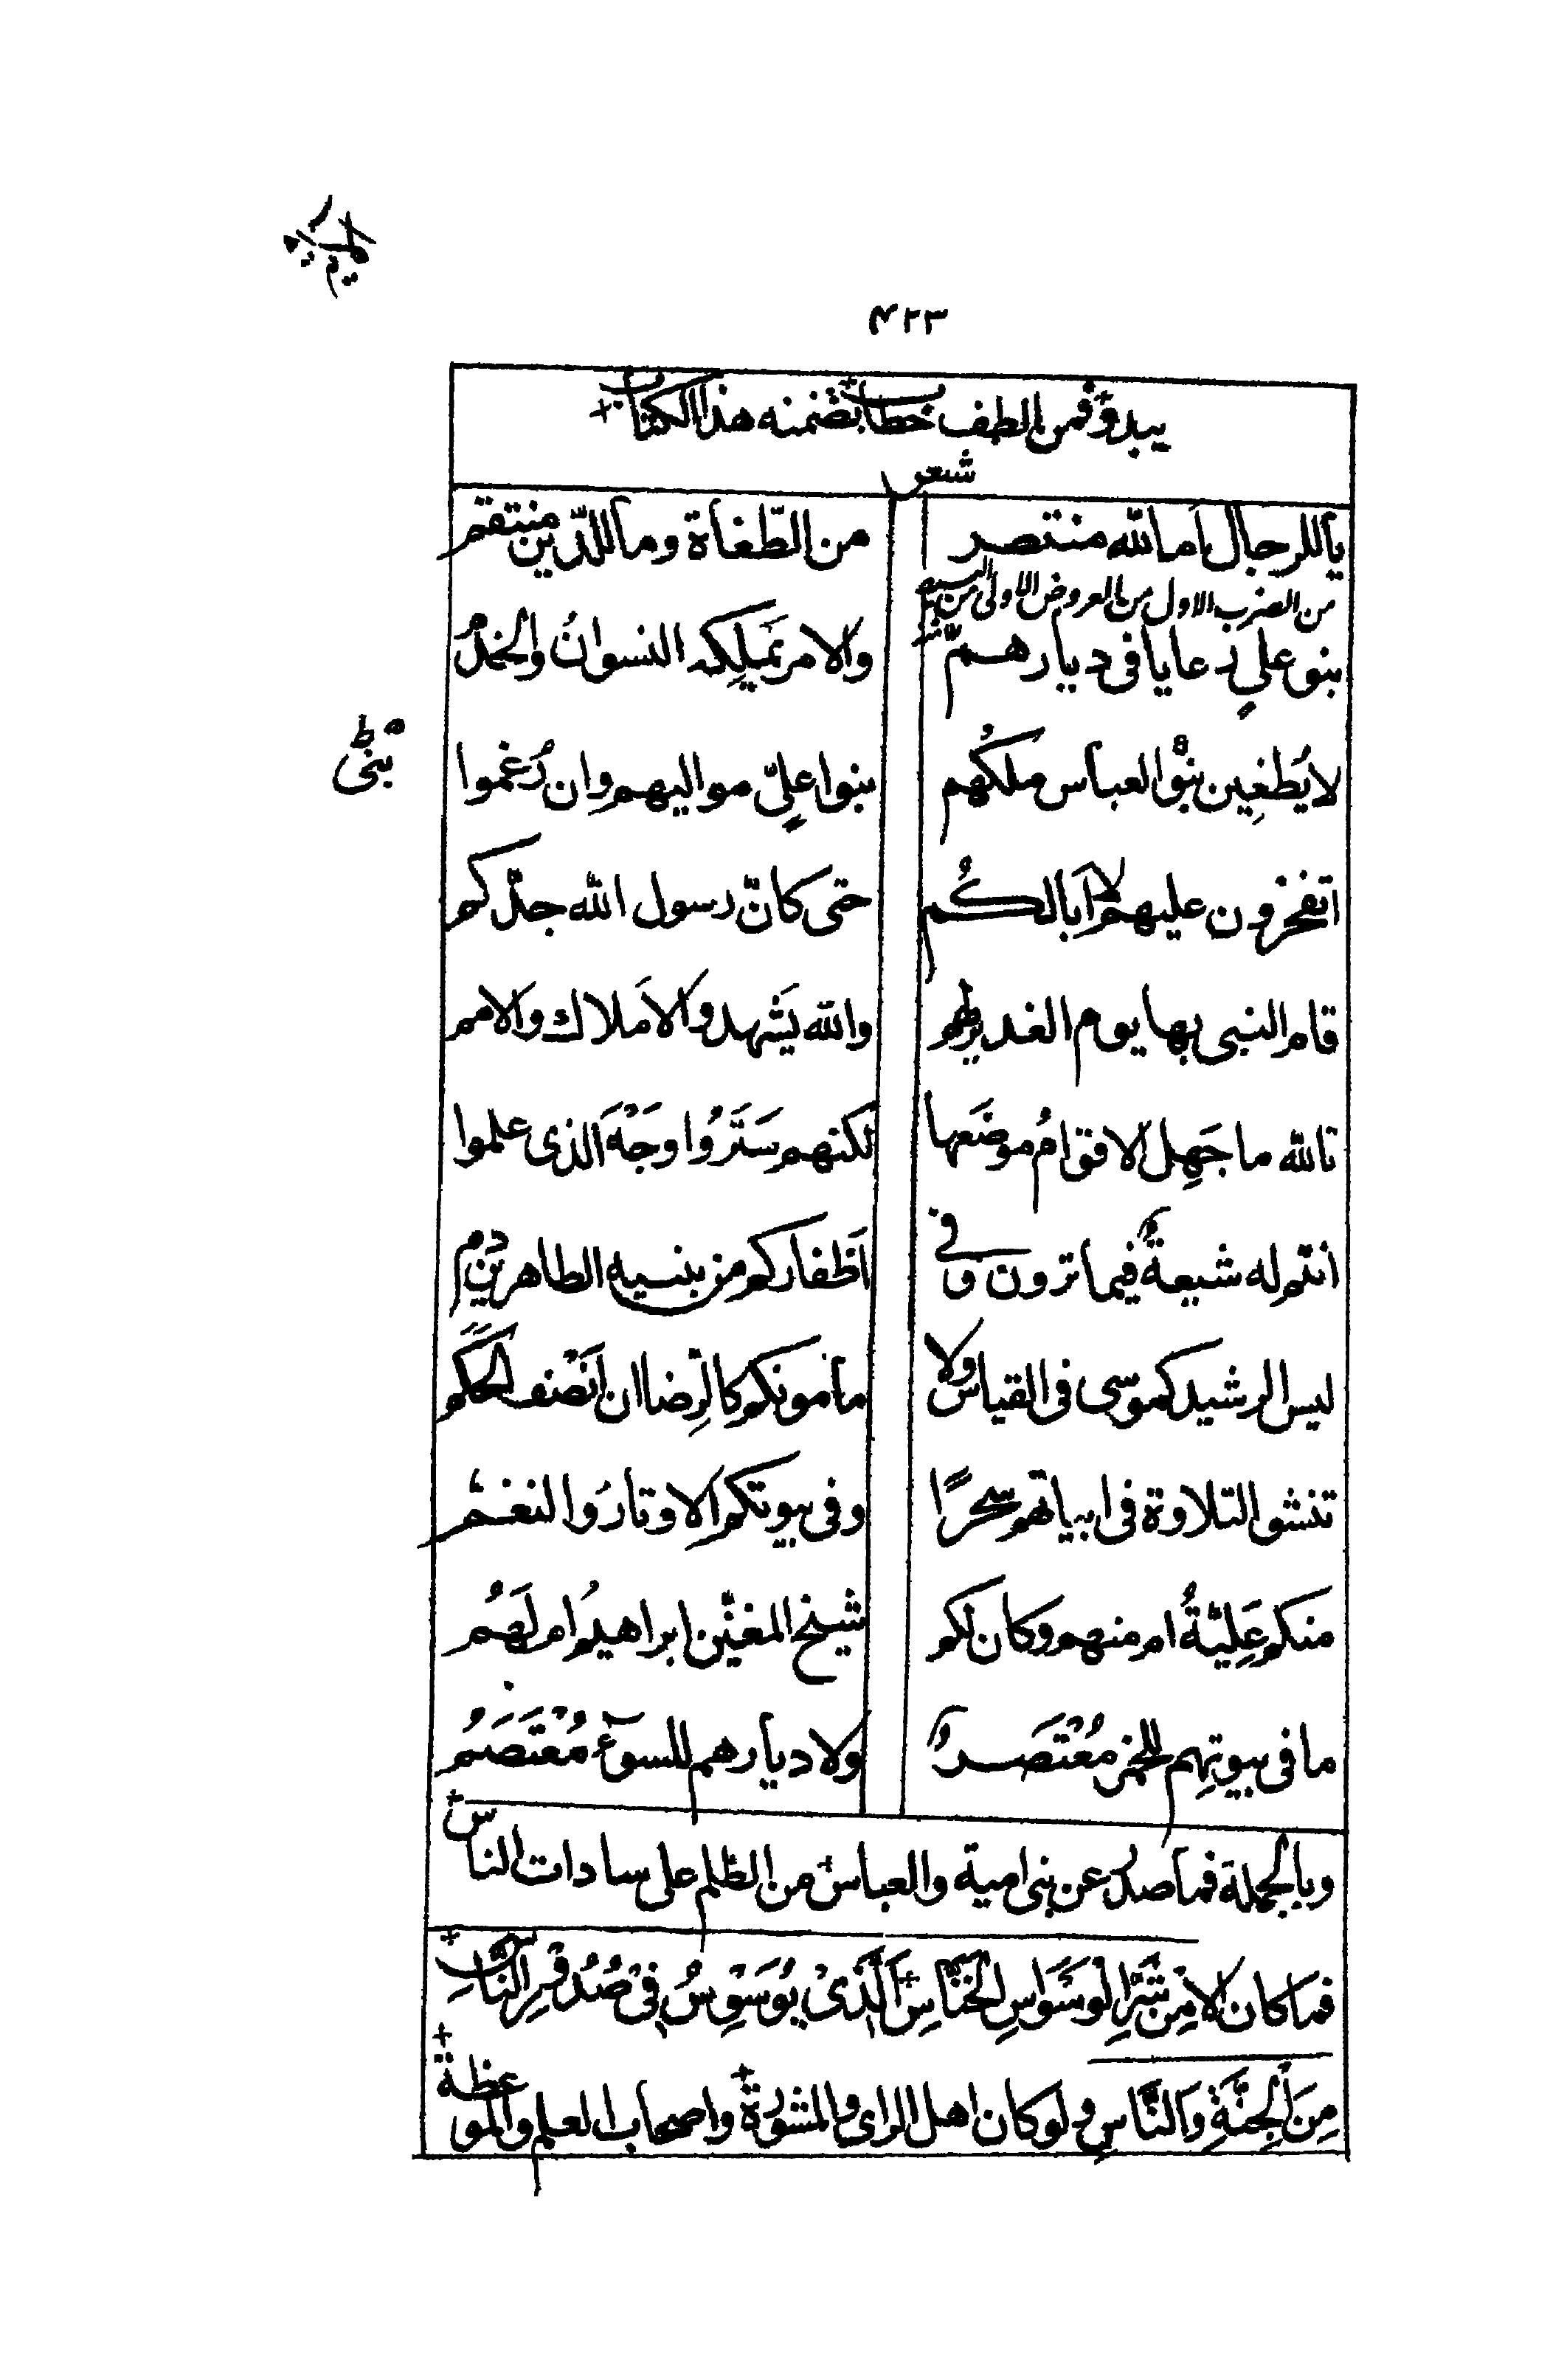 ۴۲۳
يبدو فمن الطف خطاب تضمنه هذا الكتاب
شعر
يا للرجال اما لله منتصر من الطّغاة وما للدّين منتقم
من الضرب الاول من العروض الاولى من البسيط
بنو علي رعايا فى ديارهم والامر تملكه النسوانُ والخدمُ
لا يُطغِين بنو العباس ملكهم بنوا عليّ مواليهم وان رُغموا
اتفخرون عليهم لا اَبا لكُم حتى كانّ رسول الله جدّكم
قام النبى بها يوم الغدير لهم والله يَشهد والاَملاك والامم
تالله ما جَهِل الاقوامُ موضَعها لكنهم سَتَرُوا وَجْهَ الذى علموا
انتم له شيعةٌ فيما ترون وفى اَظفاركم من بنيه الطاهرين دم
ليس الرشيد كموسى فى القياس ولا مأمونكم كالرِضا ان اَنْصف الحكم
تنشو التلاوة فى ابياتهم سحرًا وفى بيوتكم الاوتارُ والنغم
منكم عَلِيّةُ ام منهم وكان لكم شيخ المغنّين ابراهيمُ ام لَهُم
ما فى بيوتِهم للخمر مُعْتَصَرٌ ولا ديارهم للسوء مُعْتَصَمُ
وبالجملة فما صدر عن بنى امية والعباس من الظلم على سادات الناس
فما كان الا مِنْ شَرِّ الْوَسْوَاسِ الْخَنَّاسِ الَّذِىْ يُوَسْوِسُ فِىْ صُدُوْرِ النَّاسِ
مِنَ الْجِنَّةِ وَالنَّاسِ ولو كان اهل الراى والمشورة واصحاب العلم والموعظة